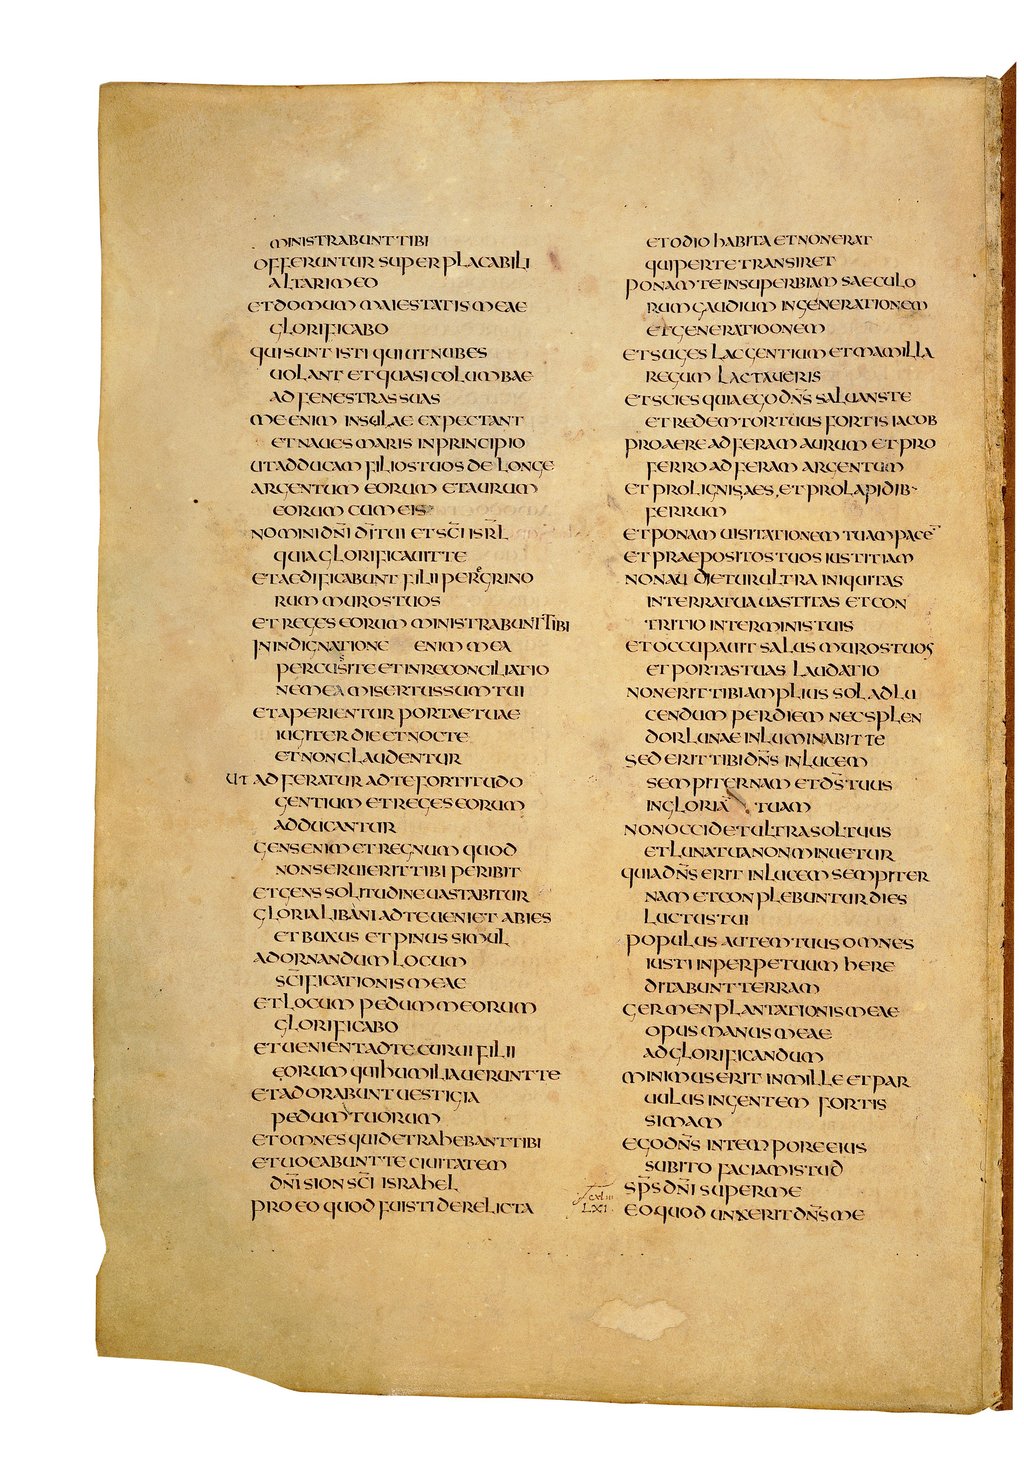 MINISTRABUNT TIBI
OFFERUNTUR SUPER PLACABILI
ALTARI MEO
ET DOMUM MAIESTATIS MEAE
GLORIFICABO
QUI SUNT ISTI QUI UT NUBES
UOLANT ET QUASI COLUMBAE
AD FENESTRAS SUAS
ME ENIM INSULAE EXPECTANT
ET NAUES MARIS IN PRINCIPIO
UT ADDUCAM FILIOS TUOS DE LONGE
ARGENTUM EORUM ET AURUM
EORUM CUM EIS
NOMINI DN̄I DĪ TUI ET SC̄I ISRL̄
QUIA GLORIFICAUIT TE
ET AEDIFICABUNT FILII PEREGRINO
RUM MUROS TUOS
ET REGES EORUM MINISTRABUNT TIBI
IN INDIGNATIONE ENIM MEA
PERCUSSI TE ET IN RECONCILIATIO
NE MEA MISERTUS SUM TUI
ET APERIENTUR PORTAE TUAE
IUGITER DIE ET NOCTE
ET NON CLAUDENTUR
UT ADFERATUR AD TE FORTITUDO
GENTIUM ET REGES EORUM
ADDUCANTUR
GENS ENIM ET REGNUM QUOD
NON SERUIERIT TIBI PERIBIT
ET GENS SOLITUDINE UASTABITUR
GLORIA LIBANI AD TE UENIET ABIES
ET BUXUS ET PINUS SIMUL
ADORNANDUM LOCUM
SC̄IFICATIONIS MEAE
ET LOCUM PEDUM MEORUM
GLORIFICABO
ET UENIENT AD TE CURUI FILII
EORUM QUI HUMILIAUERUNT TE
ET ADORABUNT UESTIGIA
PEDUM TUORUM
ET OMNES QUI DETRAHEBANT TIBI
ET UOCABUNT TE CIUITATEM
DN̄I SION SC̄I ISRAHEL
PRO EO QUOD FUISTI DERELICTA
ET ODIO HABITA ET NON ERAT
QUI PER TE TRANSIRET
PONAM TE IN SUPERBIAM SAECULO
RUM GAUDIUM IN GENERATIONEM
ET GENERATIOONEM
ET SUGES LAC GENTIUM ET MAMILLA
REGUM LACTAUERIS
ET SCIES QUIA EGO DN̄S SALUANS TE
ET REDEMTOR TUUS FORTIS IACOB
PRO AERE ADFERAM AURUM ET PRO
FERRO ADFERAM ARGENTUM
ET PRO LIGNIS AES, ET PRO LAPIDIB·
FERRUM
ET PONAM UISITATIONEM TUAM PACĒ
ET PRAEPOSITOS TUOS IUSTITIAM
NON AUDIETUR ULTRA INIQUITAS
IN TERRA TUA UASTITAS ET CON
TRITIO IN TERMINIS TUIS
ET OCCUPAUIT SALUS MUROS TUOS
ET PORTAS TUAS LAUDATIO
NON ERIT TIBI AMPLIUS SOL AD LU
CENDUM PER DIEM NEC SPLEN
DOR LUNAE INLUMINABIT TE
SED ERIT TIBI DN̄S IN LUCEM
SEMPITERNAM ET DS̄ TUUS
IN GLORIA TUAM
NON OCCIDET ULTRA SOL TUUS
ET LUNA TUA NON MINUETUR
QUIA DN̄S ERIT IN LUCEM SEMPITER
NAM ET CONPLEBUNTUR DIES
LUCTUS TUI
POPULUS AUTEM TUUS OMNES
IUSTI IN PERPETUUM HERE
DITABUNT TERRAM
GERMEN PLANTATIONIS MEAE
OPUS MANUS MEAE
AD GLORIFICANDUM
MINIMUS ERIT IN MILLE ET PAR
UULUS IN GENTEM FORTIS
SIMAM
EGO DN̄S IN TEMPORE EIUS
SUBITO FACIAM ISTUD
SP̄S DN̄I SUPER ME
LXI·
EO QUOD UNXERIT DN̄S ME